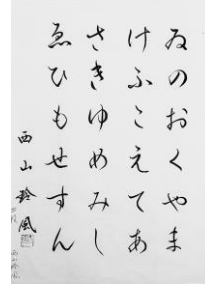 ゐのおくやま
けふこえてあ
さきゆめみし
ゑひもせすん
西山玲風